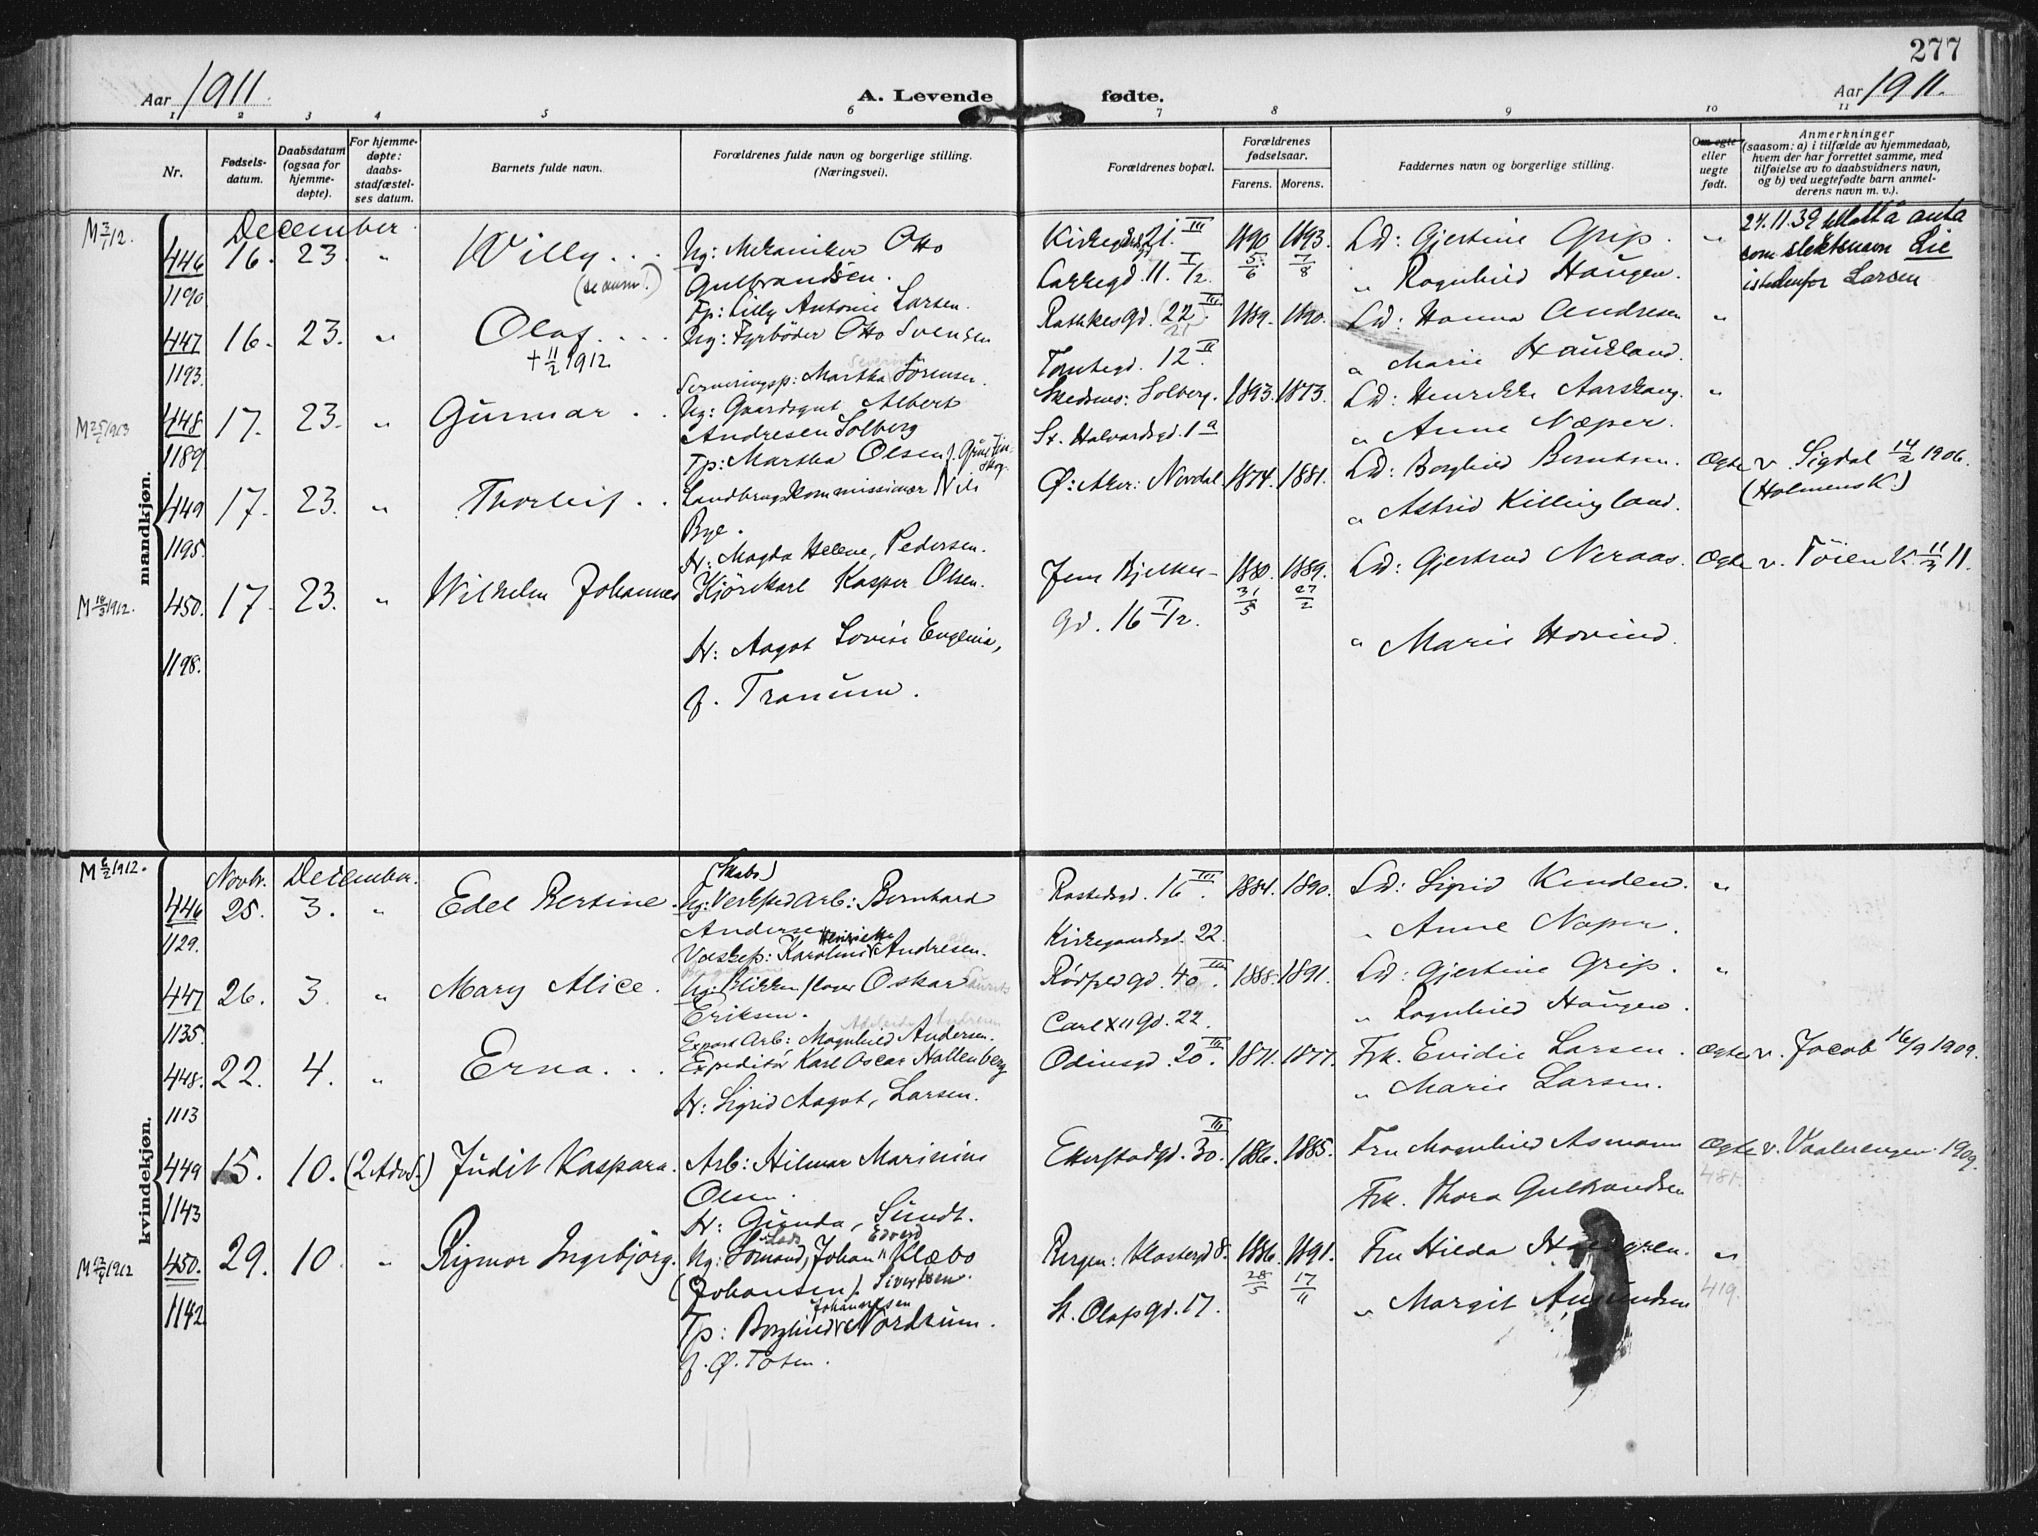 277
Aar 1911.
A. Levende fødte.
Aar 1911.
1 2 3 4 5 6 7 8 9 10 11
Nr.
Fødsels-
datum.
Daabsdatum
(ogsaa for
hjemme-
døpte).
For hjemme-
døpte:
daabs-
stadfæstel-
ses datum.
Barnets fulde navn.
Forældrenes fulde navn og borgerlige stilling.
(Næringsvei).
Forældrenes bopæl.
Forældrenes
fødselsaar.
Farens. Morens.
Faddernes navn og borgerlige stilling.
Om egte
eller
uegte
født.
Anmerkninger
(saasom: a) i tilfælde av hjemmedaab,
hvem der har forrettet samme, med
tilføielse av to daabsvidners navn,
og b) ved uegtefødte barn anmel-
derens navn m. v.).
mandkjøn.
December
446 16. 23. " Willy . . . Ug: Mekaniker Otto Kirkegd. 21. III 1890 1893. Ld: Gjertine Grip. " 24.11.39 tillatt å anta
1190 Gulbrandsen. 11. I 1/2. 5/6 7/8 " Ragnhild Haugen. som slektsnavn Lie
Tp: Lilly Antonie Larsen. istedenfor Larsen
447 16. 23. " Olaf . . . Ug: Fyrbøder Otto Svensen Rathkesgd. (22. III 1889. 1890. Ld: Hanna Andresen "
1193. + 11/2 1912 Serveringsp: Martha Sørensen. Tomtegd. 12 II " Marie Haugland.
M 25/1 1913 448 17. 23. " Gunnar . . Ug: Gaardsgut Albert Skedsmo: Solberg. 1893. 1873. Ld: Henrikke Aarskaug. "
1189. Andresen Solberg St. Halvardsgd. 1 a " Anne Næper.
Tp: Martha Olsen
449 17. 23. " Thorleif . . Landbrugskommissionær Nils Ø: Aker: Nordal. 1874. 1881. Ld: Borghild Berntsen. Egte v. Sigdal 14/2 1906.
1195. Bye. " Astrid Killingland. (Holmens K.)
H: Magda Helene, Pedersen.
450. 17. 23. " Wilhelm Johannes Kjørekarl Kasper Olsen. Jens Bjelkes- 1880. 1889. Ld: Gjertrud Neraas. Egte v. Tøien K. 11/3 11.
1198. gd. 16 I 1/2. 31/5 27/2
H: Aagot Lovise Eugenia, " Marie Hovind.
f. Tranum.
kvindekjøn.
M 6/2 1912. Novbr. December.
446 25. 3. " Edel Bertine. Ug: Verksted Arb: Bernhard 16 III. 1884. 1890. Ld: Sigrid Kinden. "
1129. Andersen Kirkegaardsgd. 22. " Anne Naper.
Vaskep: Karoline Henriette Andresen.
447 26. 3. " Mary Alice. Ug: Blikkenslager Oskar Rødfyldgd. 40 III. 1888. 1891. Ld: Gjertine Grip. "
1135. Eriksen. Carl XII Gd. 22. " Ragnhild Haugen.
Export Arb: Magnhild Andersen.
448. 22. 4. " Erna . . . Expeditør Karl Oscar Hallenberg Odinsgd. 20 III. 1871. 1877. Frk. Evidie Larsen. Egte v. Jacob 16/9 1909.
1113 H: Sigrid Aagot, Larsen. " Marie Larsen.
449 15. 10. (2 Adv. S.) Judit Kaspara. Arb: Hilmar Marinius Etterstadgd. 30. III 1886. 1885. Fru Magnhild Asmann Egte v. Vaalerengen 1909.
1143 Olsen. Frk. Thora Gulbrandsen 481.
H: Gunda, Sundt.
450. 29. 10 " Rigmor Ingebjörg. Ug: Sömand, Johan Edvard Klæbo Bergen: Klostergd 8. 1886. 1891. Fru Hilda "
1142 (Johansen). Sivertsen. St. Olafsgd. 17. 28/5 17/11 " Margit 419.
Tp: Borghild Johannesen Nordrum.
f. Ø. Toten.